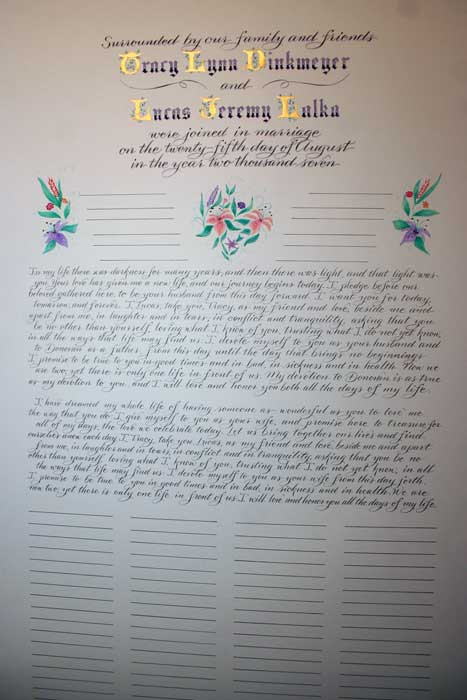 Surrounded by our family and friends
Tracy Lynn Dinkmeyer
and
Lucas Jeremy Lalka
were joined in marriage
on the twenty-fifth day of August
in the year two thousand seven
In my life there was darkness for many years, and then there was light, and that light was
you. Your love has given me a new life, and our journey begins today. I pledge before our
beloved gathered here, to be your husband from this day forward. I want you for today,
tomorrow, and forever. I, Lucas, take you, Tracy, as my friend and love, beside me and
apart from me, in laughter and in tears, in conflict and tranquility, asking that you
be no other than yourself, loving what I know of you, trusting what I do not yet know,
in all the ways that life may find us. I devote myself to you as your husband and
to Donovan as a father, from this day until the day that brings no beginnings.
I promise to be true to you in good times and in bad, in sickness and in health. Now we
are two, yet there is only one life in front of us. My devotion to Donovan is as true
as my devotion to you, and I will love and honor you both all the days of my life.
I have dreamed my whole life of having someone as wonderful as you to love me
the way that you do. I give myself to you as your wife, and promise here to treasure for
all of my days, the love we celebrate today. Let us bring together our lives and find
ourselves anew each day. I, Tracy, take you, Lucas, as my friend and love, beside me and apart
from me, in laughter and in tears, in conflict and in tranquility, asking that you be no
other than yourself, loving what I know of you, trusting what I do not yet know, in all
the ways that life may find us. I devote myself to you as your wife from this day forth.
I promise to be true to you in good times and in bad, in sickness and in health. We are
now two, yet there is only one life in front of us. I will love and honor you all the days of my life.